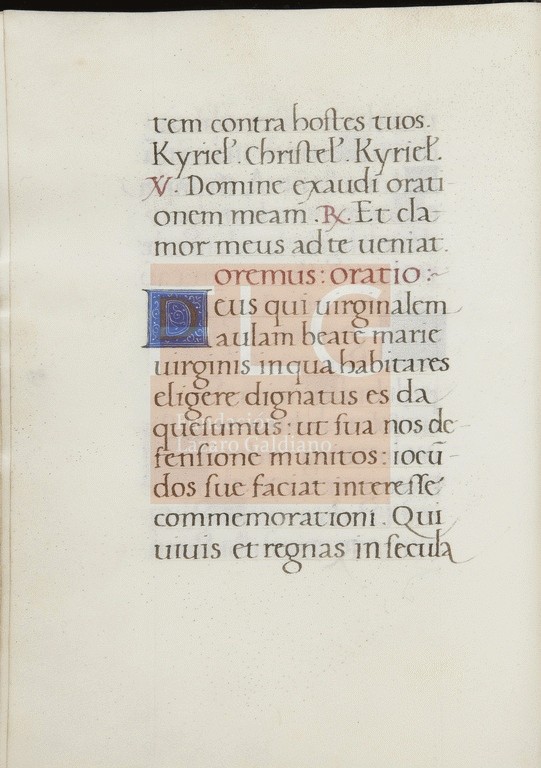 tem contra hostes tuos.
Kyriel'. Christel'. Kyriel'.
V. Domine exaudi orati
onem meam̄. R. Et cla
mor meus ad te ueniat.
oremus: oratio:~
Deus qui uirginalem
aulam beate marie
uirginis in qua habitares
eligere dignatus es da
quesumus: ut sua nos de-
fensione munitos: iocū-
dos sue faciat interesse
commemorationi. Qui
uiuis et regnas in secula
FLG
Fundación
Lázaro Galdiano